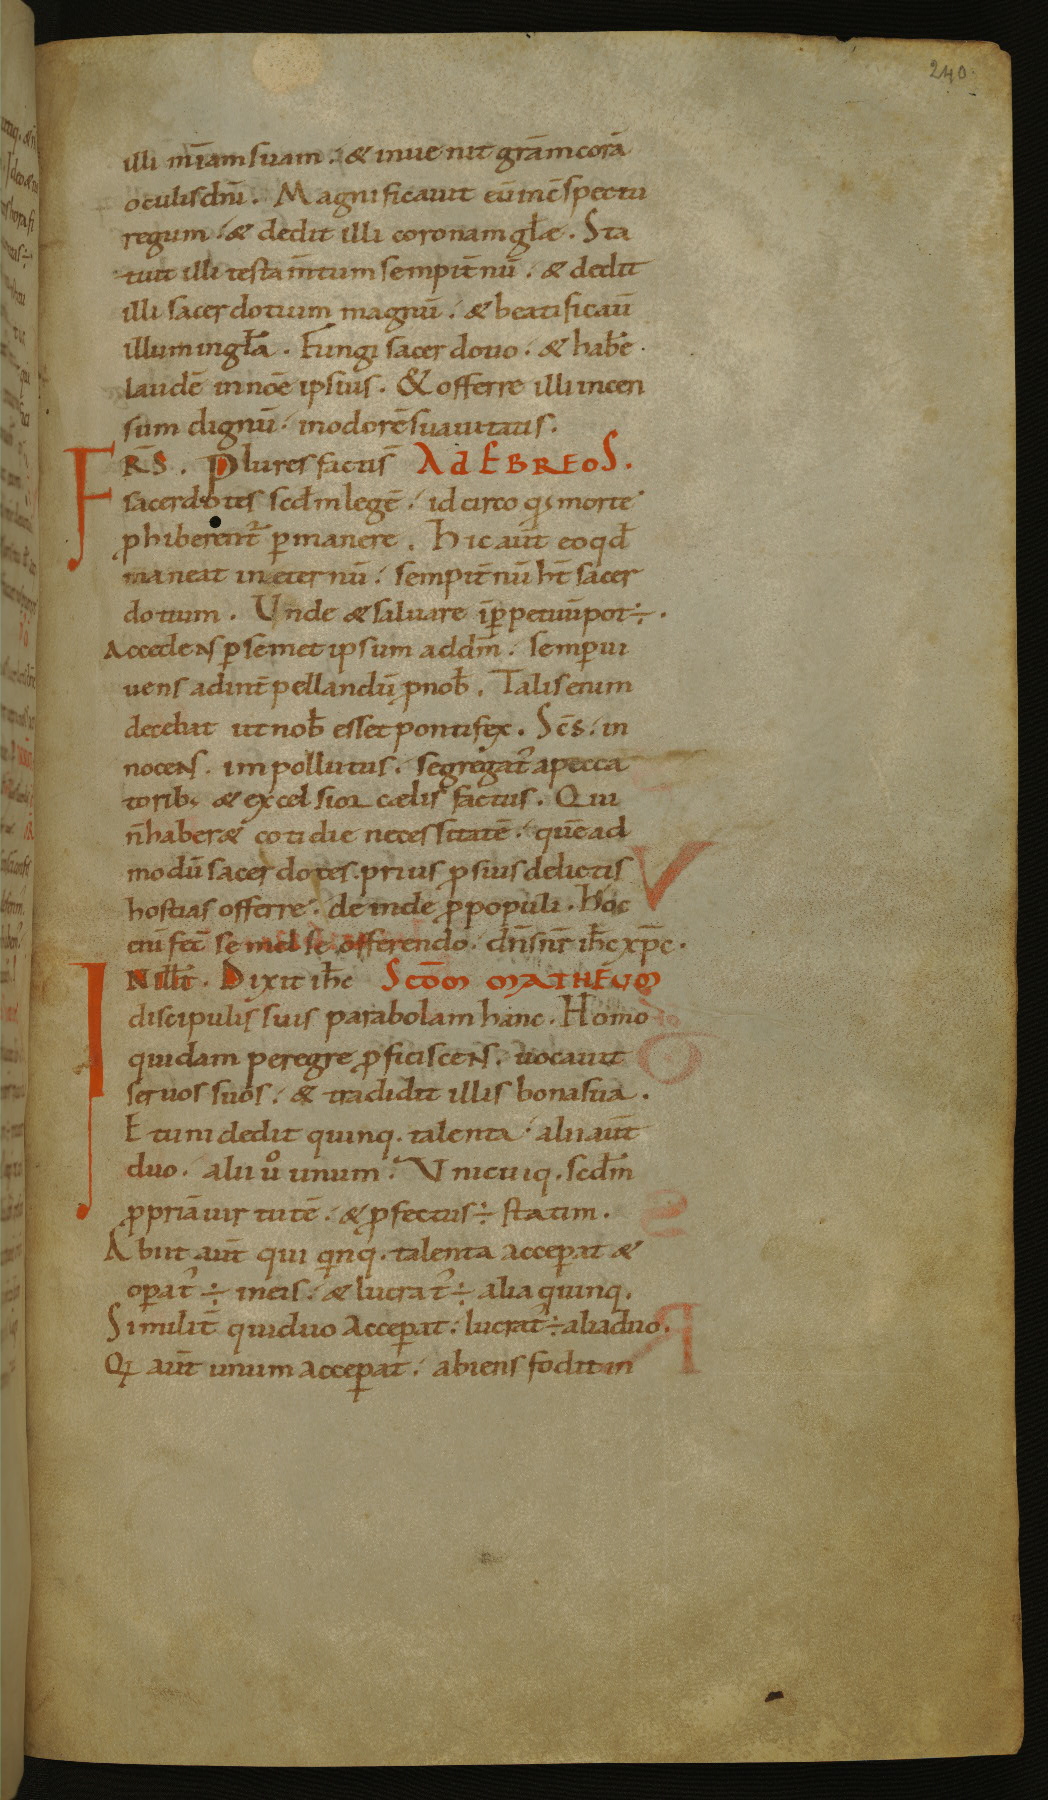 240
illi m̄iam suam. & inuenit gr̄am corā
oculis dn̄i. Magnificauit eū in c̄spectu
regum. & dedit illi coronam gl̄æ. Sta
tuit illi testam̄tum sempit̄nū. & dedit
illi sacerdotium magnū. & beatificau̅
illum in gl̄a. Fungi sacerdotio. & hab̄e.
laudē in noē ipsius. & offerre illi incen
sum dignū. in odorē suauitatis.
FR̄S. Plures facti s̄ Ad EBREOS.
sacerdotes scd̄m legē. id circo q; morte
ꝓhiberent̄ ꝑmanere. Hic aūt eo qd̄
maneat in eternū. sempit̄nū ht̄ sacer
dotium. Vnde & saluare ī ꝑpetuū pot÷.
Accedens ꝑ semet ipsum ad dm̄. semꝑ ui
uens ad int̄pellandū ꝓ nob̄. Talis enim
decebat ut nob̄ esset pontifex. Sc̄s. in
nocens. impollutus. segregat' a pecca
torib; & excelsior cælis factus. Qui
n̄ haber& cotidie necessitatē. quē ad
modū sacerdotes. prius ꝓ suis delictis
hostias offerre. deinde ꝓ populi. Hoc
eni fec̄ semel se offerendo. dn̄s nr̄ ih̄c xp̄c.
IN ill̄ t̄. Dixit ih̄c Scd̄m MATHEVM
discipulis suis parabolam hanc. Homo
quidam peregre ꝓficiscens. uocauit
seruos suos. & tradidit illis bona sua.
Et uni dedit quinq. talenta. alii aūt
duo. alii uº unum. Vnicuiq. scd̄m
ꝓpriā uirtutē. & ꝓfectus÷ statim.
Abiit aūt qui qinq. talenta acceꝑat &
oꝑat'÷ in eis. & lucrat'÷ alia quinq.
Similit̄ qui duo acceꝑat. lucrat'÷ alia duo.
Qi aūt unum acceꝑat. abiens fodit in